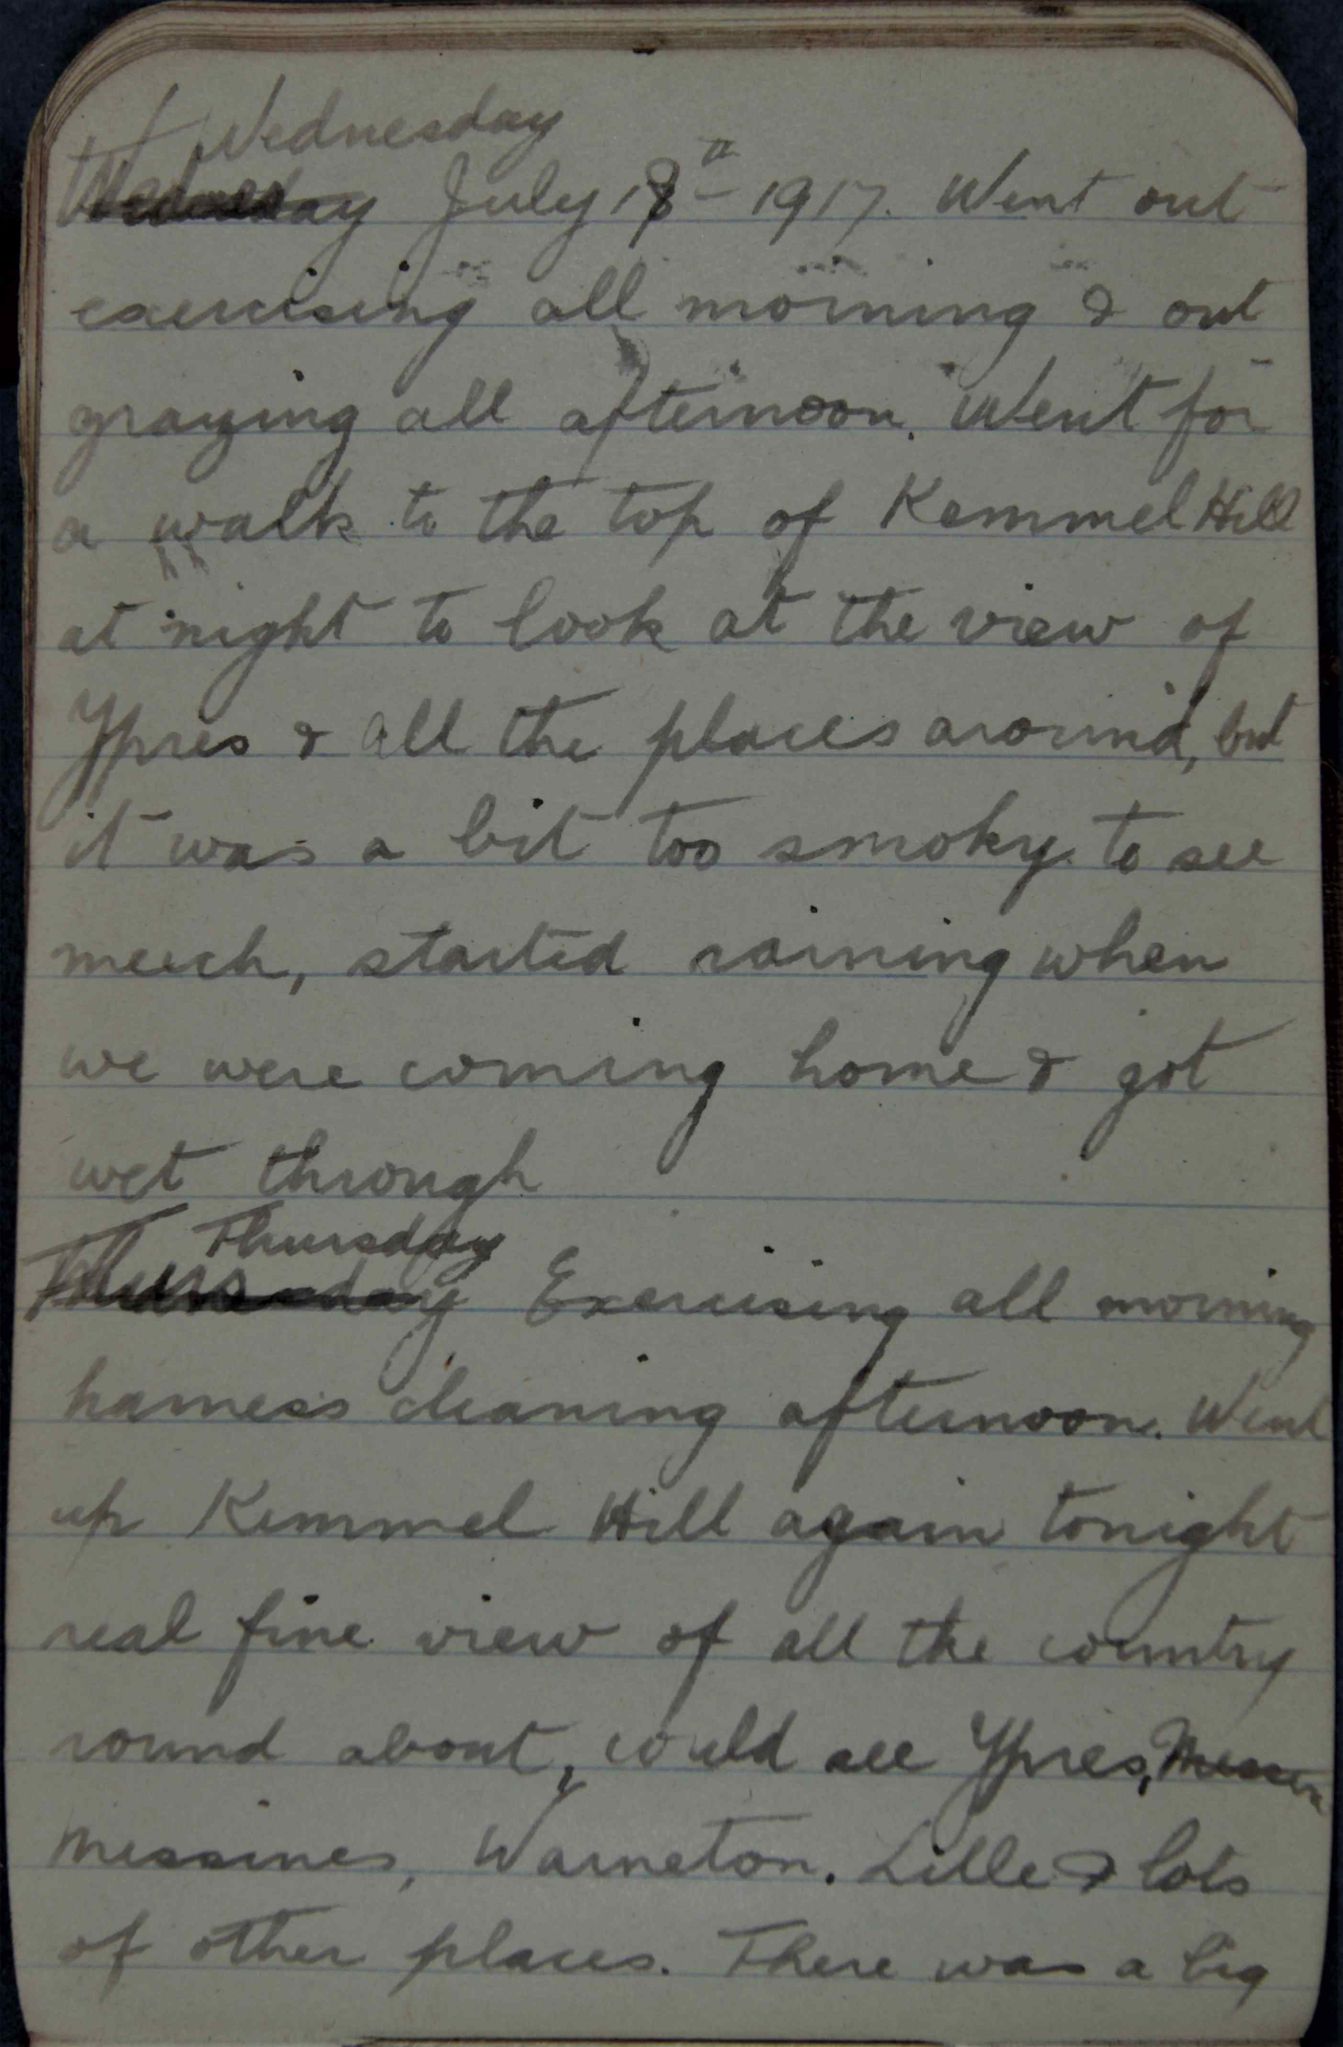 Wednesday
July 18th 1917. Went out
exercising all morning & out
grazing all afternoon. Went for
a walk to the top of Kemmel Hill
at night to look at the view of
Ypres & all the places around, but
it was a bit too smoky to see
much, started raining when
we were coming home & got
wet through
Thursday
Exercising all morning
harness cleaning afternoon. Went
up Kemmel Hill again tonight
real fine view of all the country
round about, could see Ypres,
Messines, Warneton. Lille & lots
of other places. There was a big